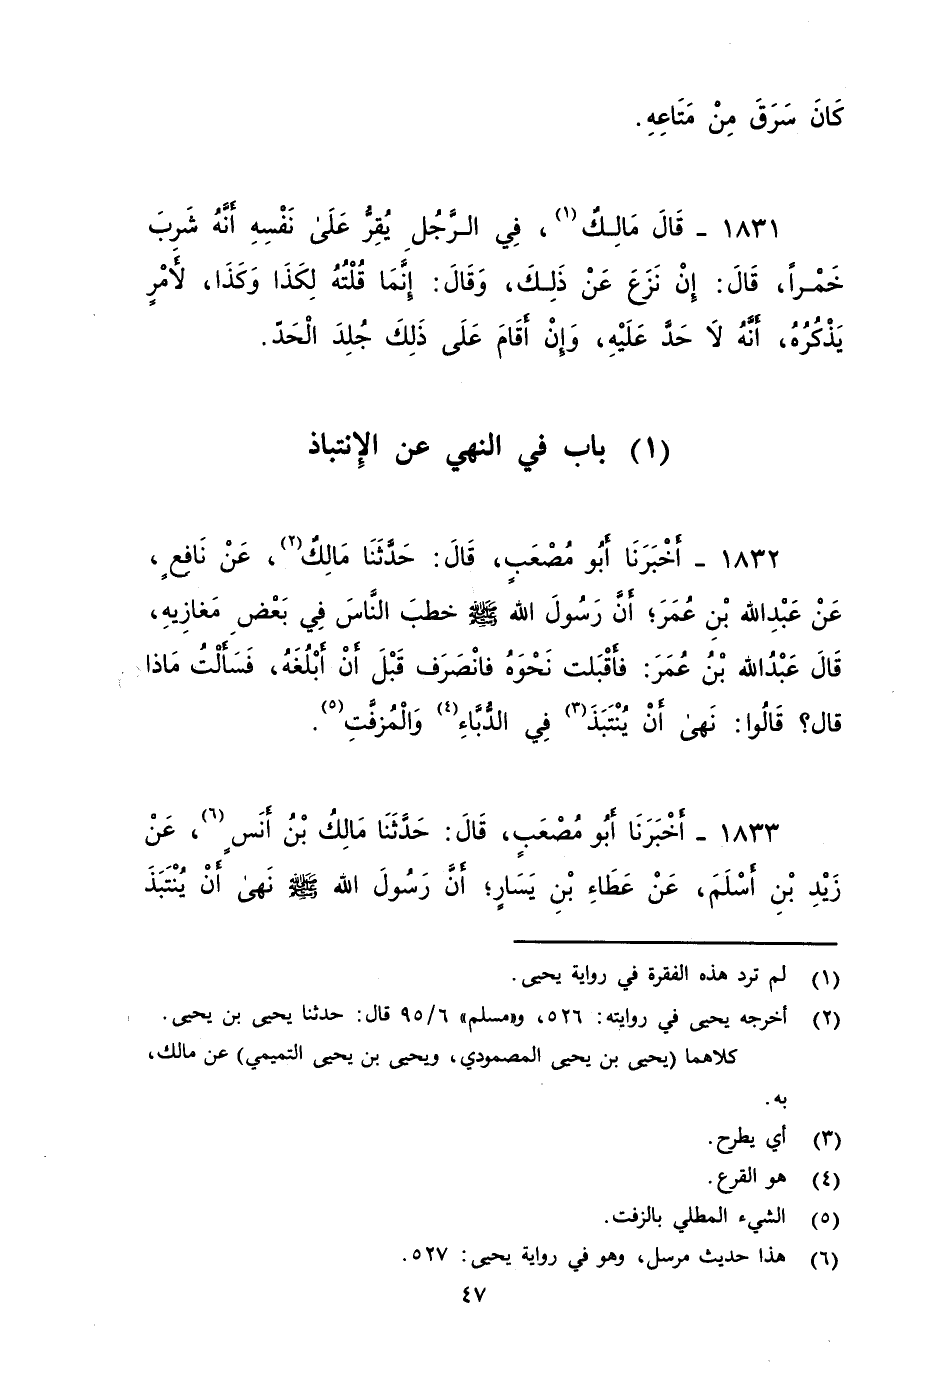 كَانَ سَرَقَ مِنْ مَتَاعِهِ.
١٨٣١ ـ قَالَ مَالِـكٌ(١)، فِي الـرَّجُلِ يُقِرُّ عَلَىٰ نَفْسِهِ أَنَّهُ شَرِبَ
خَمْـراً، قَالَ: إِنْ نَزَعَ عَنْ ذَلِـكَ، وَقَالَ: إِنَّمَا قُلْتُهُ لِكَذَا وَكَذَا، لأَمْرٍ
يَذْكُرُهُ، أَنَّهُ لَا حَدَّ عَلَيْهِ، وَإِنْ أَقَامَ عَلَى ذَلِكَ جُلِدَ الْحَدّ.
(١) باب في النهي عن الإنتباذ
١٨٣٢ ـ أَخْبَرَنَا أَبُو مُصْعَبٍ، قَالَ: حَدَّثَنَا مَالِكٌ(٢)، عَنْ نَافِعٍ،
عَنْ عَبْدِالله بْنِ عُمَرَ؛ أَنَّ رَسُولَ الله ﷺ خطبَ النَّاسَ فِي بَعْضِ مَغازِيهِ،
قَالَ عَبْدُالله بْنُ عُمَرَ: فأَقْبَلت نَحْوَهُ فانْصَرَف قَبْلَ أَنْ أَبْلُغَهُ، فَسَأَلْتُ مَاذا
قال؟ قَالُوا: نَهىٰ أَنْ يُنْتَبَذَ(٣) فِي الدُّبَّاءِ(٤) وَالْمُزفَّتِ(٥).
١٨٣٣ ـ أَخْبَرَنَا أَبُو مُصْعَبٍ، قَالَ: حَدَّثَنَا مَالِكُ بْنُ أَنَسٍ(٦)، عَنْ
زَيْدِ بْنِ أَسْلَمَ، عَنْ عَطَاءِ بْنِ يَسَارٍ؛ أَنَّ رَسُولَ الله ﷺ نَهىٰ أَنْ يُنْتَبَذَ
(١) لم ترد هذه الفقرة في رواية يحيى.
(٢) أخرجه يحيى في روايته: ٥٢٦، و«مسلم» ٩٥/٦ قال: حدثنا يحيى بن يحيى.
كلاهما (يحيى بن يحيى المصمودي، ويحيى بن يحيى التميمي) عن مالك،
به.
(٣) أي يطرح.
(٤) هو القرع.
(٥) الشيء المطلي بالزفت.
(٦) هذا حديث مرسل، وهو في رواية يحيى: ٥٢٧.
٤٧